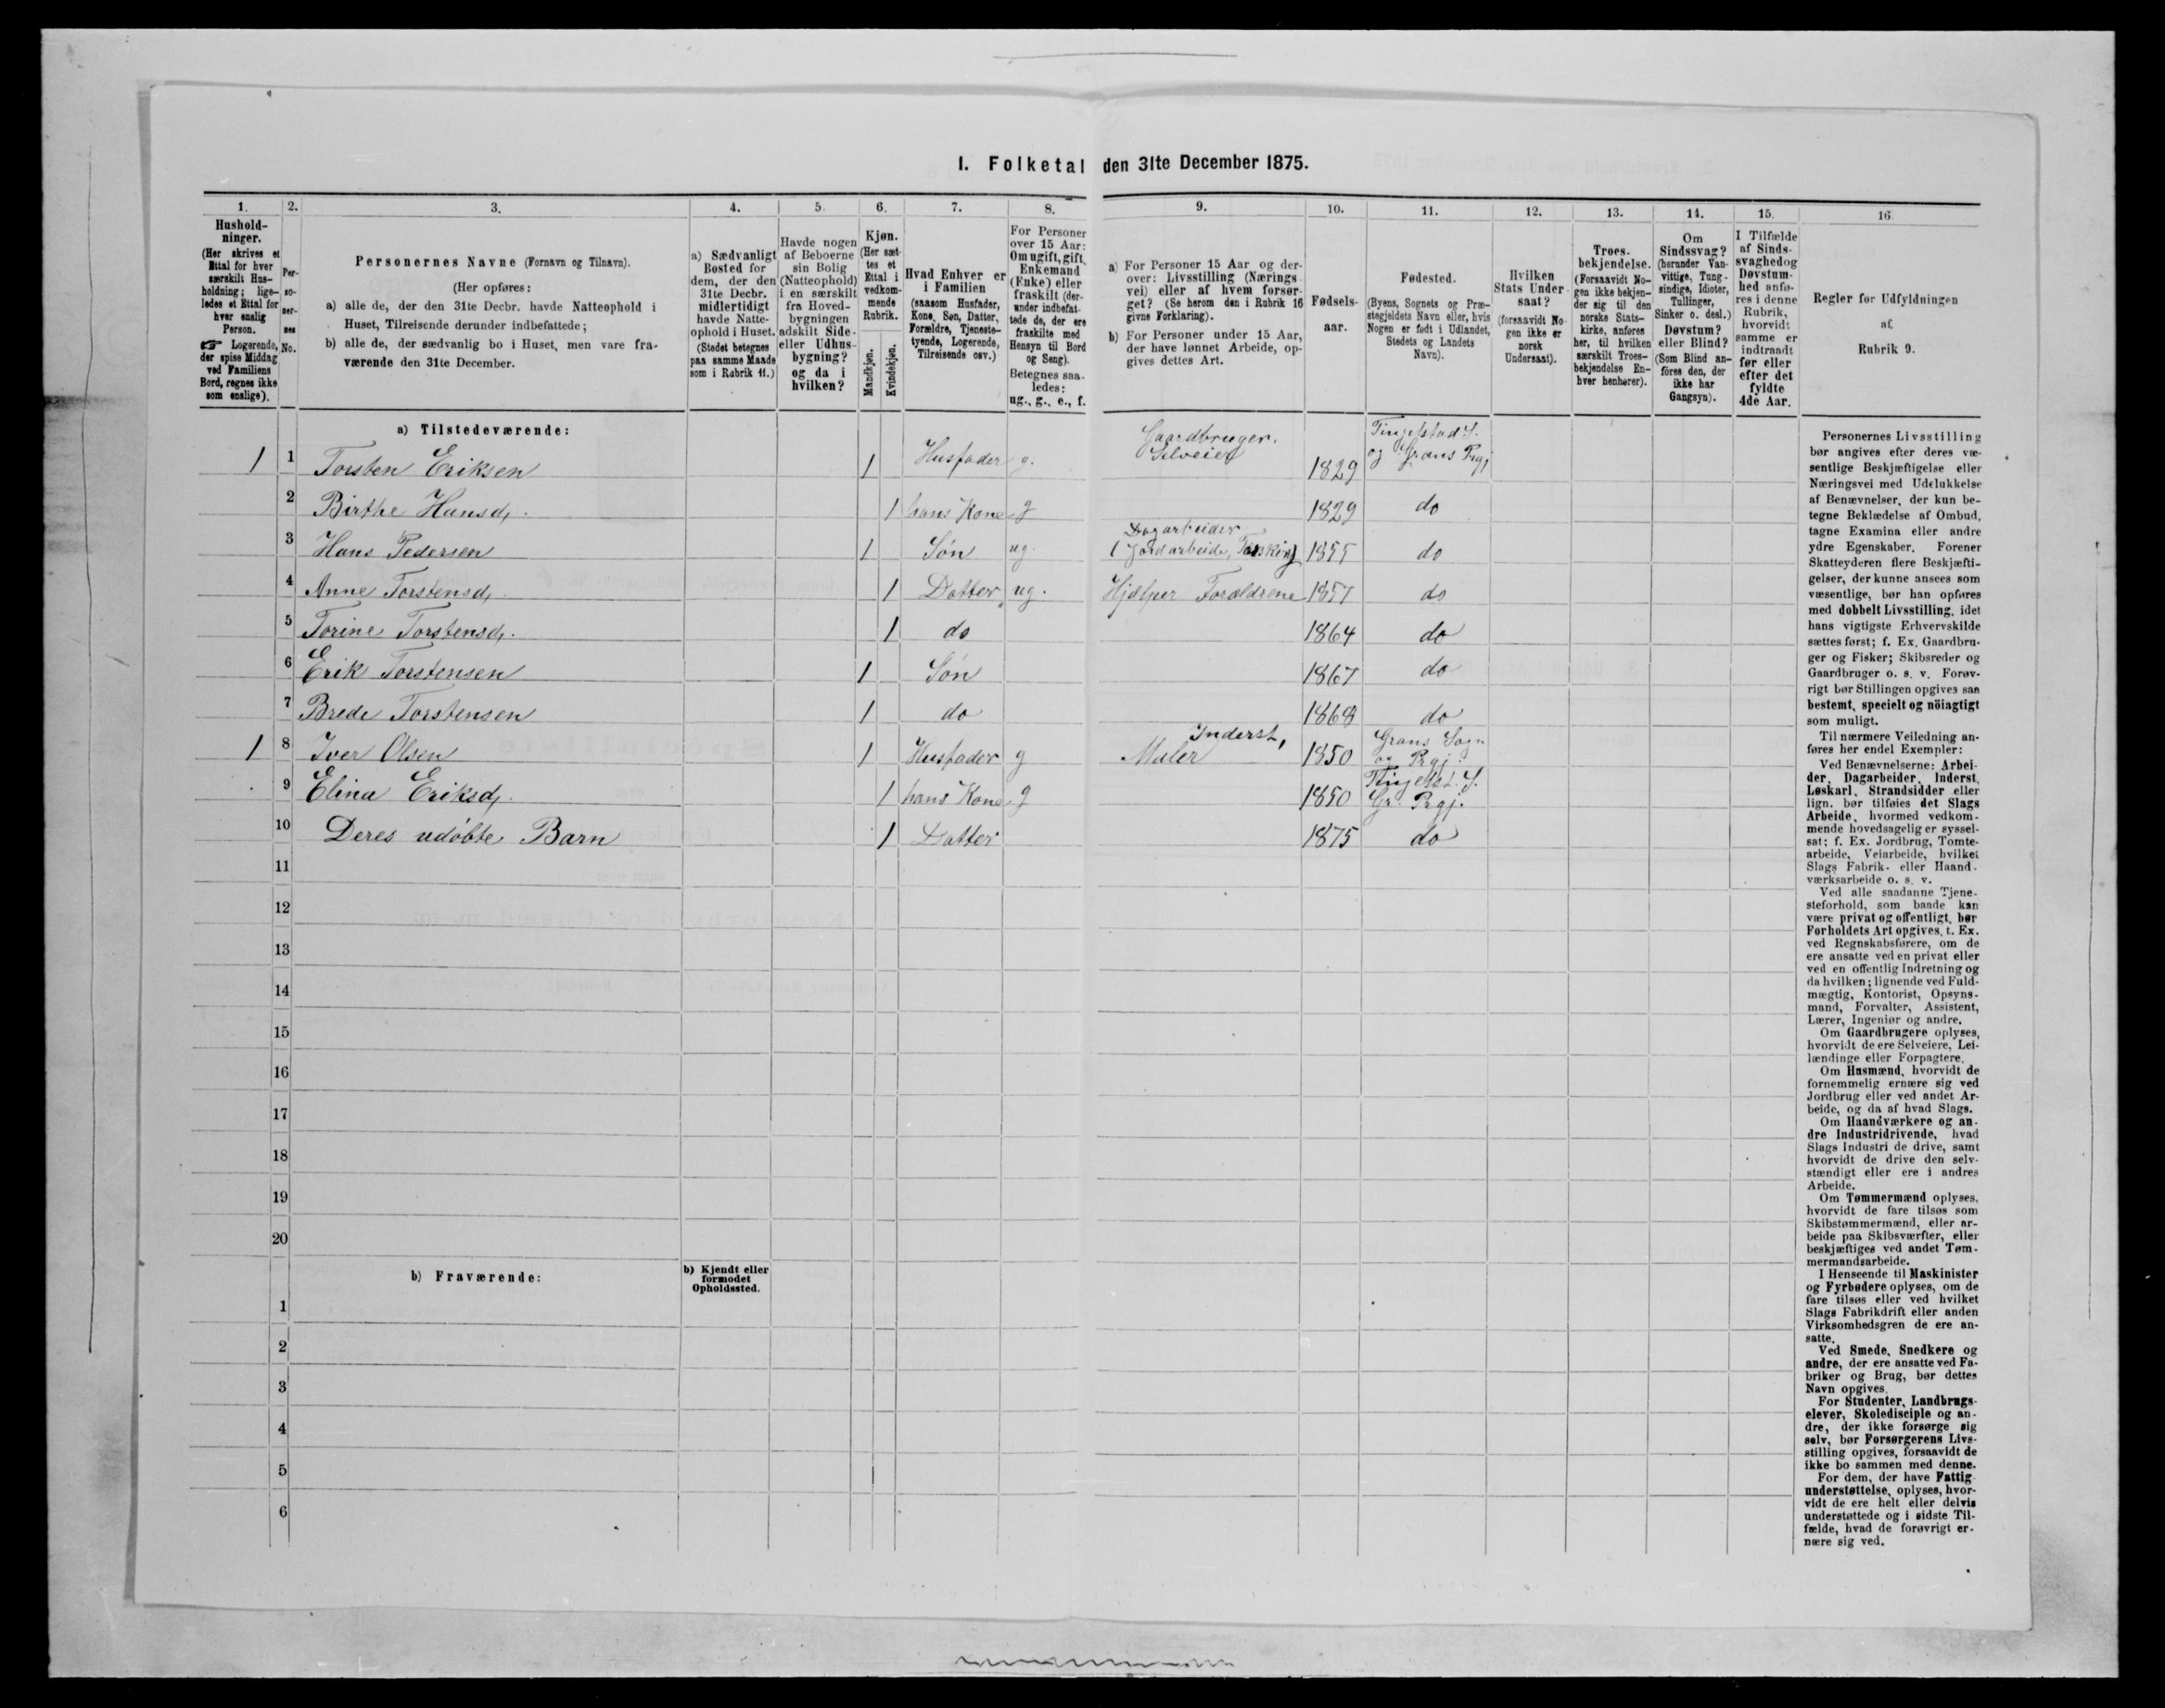 I. Folketal den 31te December 1875.
1. 2. 3. 4. 5. 6. 7. 8. 9. 10. 11. 12. 13. 14. 15. 16
Hushold-
ninger.
(Her skrives et
Ettal for hver
særskilt Hus-
holdning; lige-
ledes et Ettal for
hver enslig
Person.
☞ Logerende,
der spise Middag
ved Familiens
Bord, regnes ikke
som enslige).
Per-
so-
ner-
nes
No.
Personernes Navne (Fornavn og Tilnavn).
(Her opføres:
a) alle de, der den 31te Decbr. havde Natteophold i
Huset, Tilreisende derunder indbefattede;
b) alle de, der sædvanlig bo i Huset, men vare fra-
værende den 31te December.
a) Sædvanligt
Bosted for
dem, der den
31te Decbr.
midlertidigt
havde Natte-
ophold i Huset.
(Stedet betegnes
paa samme Maade
som i Rubrik 11.)
Havde nogen
af Beboerne
sin Bolig
(Natteophold)
i en særskilt
fra Hoved-
bygningen
adskilt Side-
eller Udhus-
bygning?
og da i
hvilken?
Kjøn.
(Her sæt-
tes et
Ettal i
vedkom-
mende
Rubrik.
Mandkjøn.
Kvindekjøn.
Hvad Enhver er
i Familien
(saasom Husfader,
Kone, Søn, Datter,
Forældre, Tjeneste-
tyende, Logerende,
Tilreisende osv.)
For Personer
over 15 Aar:
Om ugift, gift,
Enkemand
(Enke) eller
fraskilt (der-
under indbefat-
tede de, der ere
fraskilte med
Hensyn til Bord
og Seng).
Betegnes saa-
ledes:
ug., g., e., f.
a) For Personer 15 Aar og der-
over: Livsstilling (Nærings
vei) eller af hvem forsør-
get? (Se herom den i Rubrik 16
givne Forklaring).
b) For Personer under 15 Aar,
der have lønnet Arbeide, op-
gives dettes Art.
Fødsels-
aar.
Fødested.
(Byens, Sognets og Præ-
stegjeldets Navn eller, hvis
Nogen er født i Udlandet,
Stedets og Landets
Navn).
Hvilken
Stats Under
saat?
(forsaavidt No-
gen ikke er
norsk
Undersaat).
Troes-
bekjendelse.
(Forsaavidt No-
gen ikke bekjen-
der sig til den
norske Stats-
kirke, anføres
her, til hvilken
særskilt Troes-
bekjendelse En-
hver henhører).
Om
Sindssvag?
(herunder Van-
vittige, Tung-
sindige, Idioter,
Tullinger,
Sinker o. desl.)
Døvstum?
eller Blind?
(Som Blind an-
føres den, der
ikke har
Gangsyn).
I Tilfælde
af Sinds-
svaghedog
Døvstum-
hed anfø-
res i denne
Rubrik,
hvorvidt
samme er
indtraadt
før eller
efter det
fyldte
4de Aar.
Regler for Udfyldningen
af
Rubrik 9.
a) Tilstedeværende:
1 1 Torsten Eriksen 1 Husfader g. Gaardbruger. Selveier 1829 Tingelstad S. og Grans Prgj
2 Birthe Hansd. 1 hans Kone g 1829 do
3 Hans Pedersen 1 Søn ug. Dagarbeider (Jordarbeide, 1855 do
4 Anne Torstensd. 1 Datter ug. Hjælper Forældrene 1857 do
5 Torine Torstensd. 1 do 1864 do
6 Erik Torstensen 1 Søn 1867 do
7 Brede Torstensen 1 do 1868 do
1 8 Iver Olsen 1 Husfader g Inderst, Maler 1850 Grans Sogn og Prgj.
9 Elina Eriksd. 1 hans Kone g 1850 Tingelst. S. Gr. Prgj.
10 Deres udøbte Barn 1 Datter 1875 do
11
12
13
14
15
16
17
18
19
20
b) Fraværende:
b) Kjendt eller
formodet
Opholdssted.
1
2
3
4
5
6
Personernes Livsstilling
bør angives efter deres væ-
sentlige Beskjæftigelse eller
Næringsvei med Udelukkelse
af Benævnelser, der kun be-
tegne Beklædelse af Ombud,
tagne Examina eller andre
ydre Egenskaber. Forener
Skatteyderen flere Beskjæfti-
gelser, der kunne ansees som
væsentlige, bør han opføres
med dobbelt Livsstilling, idet
hans vigtigste Erhvervskilde
sættes først; f. Ex. Gaardbru-
ger og Fisker; Skibsreder og
Gaardbruger o. s. v. Forøv-
rigt bør Stillingen opgives saa
bestemt, specielt og nöiagtigt
som muligt.
Til nærmere Veiledning an-
føres her endel Exempler:
Ved Benævnelserne: Arbei-
der, Dagarbeider, Inderst,
Løskarl, Strandsidder eller
lign. bør tilføies det Slags
Arbeide, hvormed vedkom-
mende hovedsagelig er syssel-
sat; f. Ex. Jordbrug, Tomte-
arbeide, Veiarbeide, hvilket
Slags Fabrik- eller Haand-
værksarbeide o. s. v.
Ved alle saadanne Tjene-
steforhold, som baade kan
være privat og offentligt, bør
Forholdets Art opgives, t. Ex.
ved Regnskabsførere, om de
ere ansatte ved en privat eller
ved en offentlig Indretning og
da hvilken; lignende ved Fuld-
mægtig, Kontorist, Opsyns-
mand, Forvalter, Assistent,
Lærer, Ingeniør og andre.
Om Gaardbrugere oplyses,
hvorvidt de ere Selveiere, Lei-
lændinge eller Forpagtere.
Om Husmænd, hvorvidt de
fornemmelig ernære sig ved
Jordbrug eller ved andet Ar-
beide, og da af hvad Slags.
Om Haandværkere og an-
dre Industridrivende, hvad
Slags Industri de drive, samt
hvorvidt de drive den selv-
stændigt eller ere i andres
Arbeide.
Om Tømmermænd oplyses,
hvorvidt de fare tilsøs som
Skibstømmermænd, eller ar-
beide paa Skibsværfter, eller
beskjæftiges ved andet Tøm-
mermandsarbeide.
I Henseende til Maskinister
og Fyrbødere oplyses, om de
fare tilsøs eller ved hvilket
Slags Fabrikdrift eller anden
Virksomhedsgren de ere an-
satte.
Ved Smede, Snedkere og
andre, der ere ansatte ved Fa-
briker og Brug, bør dettes
Navn opgives.
For Studenter, Landbrugs-
elever, Skoledisciple og an-
dre, der ikke forsørge sig
selv, bør Forsørgerens Livs-
stilling opgives, forsaavidt de
ikke bo sammen med denne.
For dem, der have Fattig
understøttelse, oplyses, hvor-
vidt de ere helt eller delvis
understøttede og i sidste Til-
fælde, hvad de forøvrigt er-
nære sig ved.